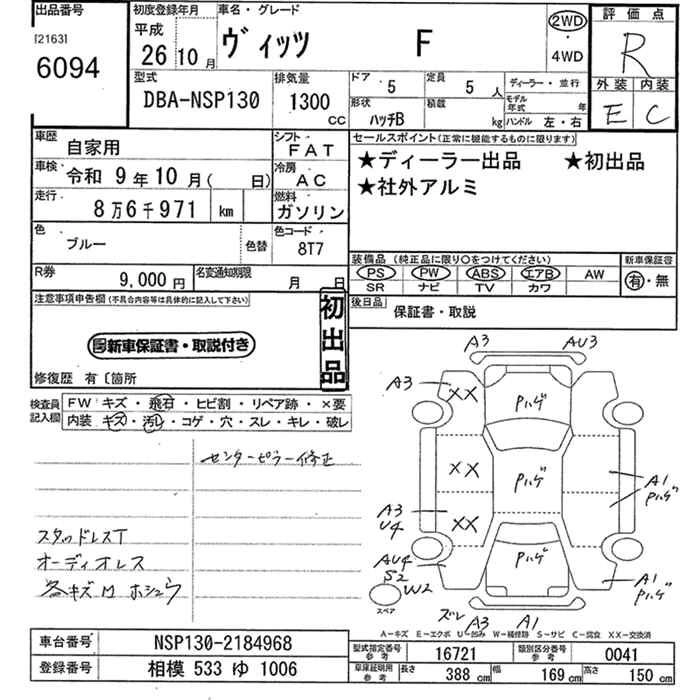 出品番号
[2163]
6094
初度登録年月
平成
26 10 月
車名・グレード
ヴィッツ F
2WD
4WD
評価点
R
外装 内装
E C
型式
DBA-NSP130
排気量
1300
CC
ドア 5
定員 5 人
ディーラー・並行
形状 ハッチB
積載 kg
モデル年式 年
ハンドル 左・右
車歴
自家用
シフト
FAT
車検
令和 9 年 10 月 ( 日)
冷房
AC
走行
8 万 6 千 971 km
燃料
ガソリン
色
ブルー
色替
色コード
8T7
R券 9,000 円
名変通知期限 月 日
セールスポイント(正常に機能するものに限ります)
★ディーラー出品 ★初出品
★社外アルミ
装備品 (純正品に限り○をつけてください)
PS PW ABS エアB AW
SR ナビ TV カワ
新車保証書
有・無
後日品
保証書・取説
注意事項申告欄(不具合内容等は具体的に記入して下さい)
新車保証書・取説付き
初出品
修復歴 有〔箇所
検査員
記入欄
FW キズ・飛石・ヒビ割・リペア跡・×要
内装 キズ・汚レ・コゲ・穴・スレ・キレ・破レ
センターピラー修正
スタッドレスT
オーディオレス
各キズ凹 ホシュウ
A3 AU3
A3
XX
Pハゲ
XX
Pハゲ
A1
Pハゲ
A3
U4
XX
AU4
S2
W2
Pハゲ
A1
Pハゲ
スペア
ズレ A3 A1
A-キズ E-エクボ U-凹み W-補修跡 S-サビ C-腐食 XX-交換済
車台番号 NSP130-2184968
登録番号 相模 533 ゆ 1006
型式指定番号
参考
16721
類別区分番号
参考
0041
車庫証明用
参考
長さ 388 cm
幅 169 cm
高さ 150 cm